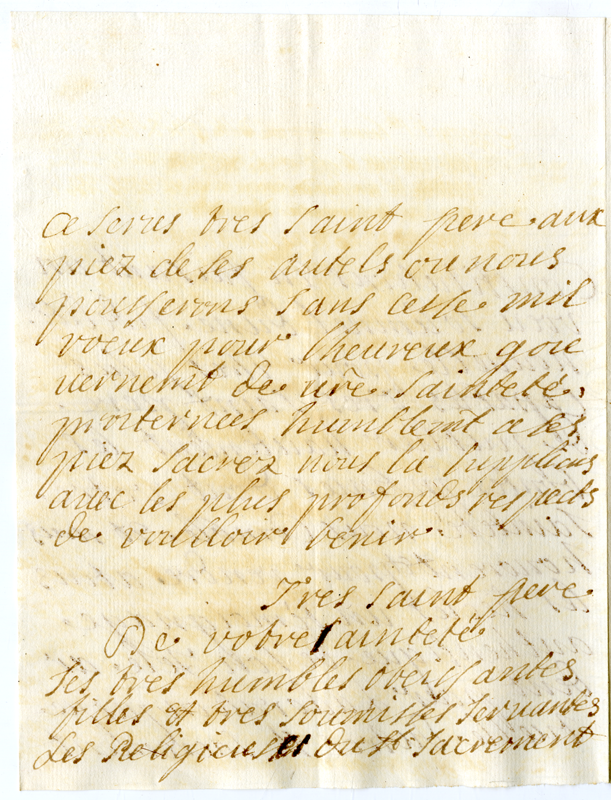 tres saint pere aux
piez de ses autels ou nous
pousserons sans cesse mil
voeux pour lheureux gou
uernem̃t de ur̃e sainteté,
prosternees humblem̃t a ses
piez sacrez nous la supplions
auec les plus profonds respects
de voulloir benir
Tres saint pere
De votre sainteté
ses tres humbles obeissantes
filles et tres soumises seruantes
Les Religieuses du St sacrement